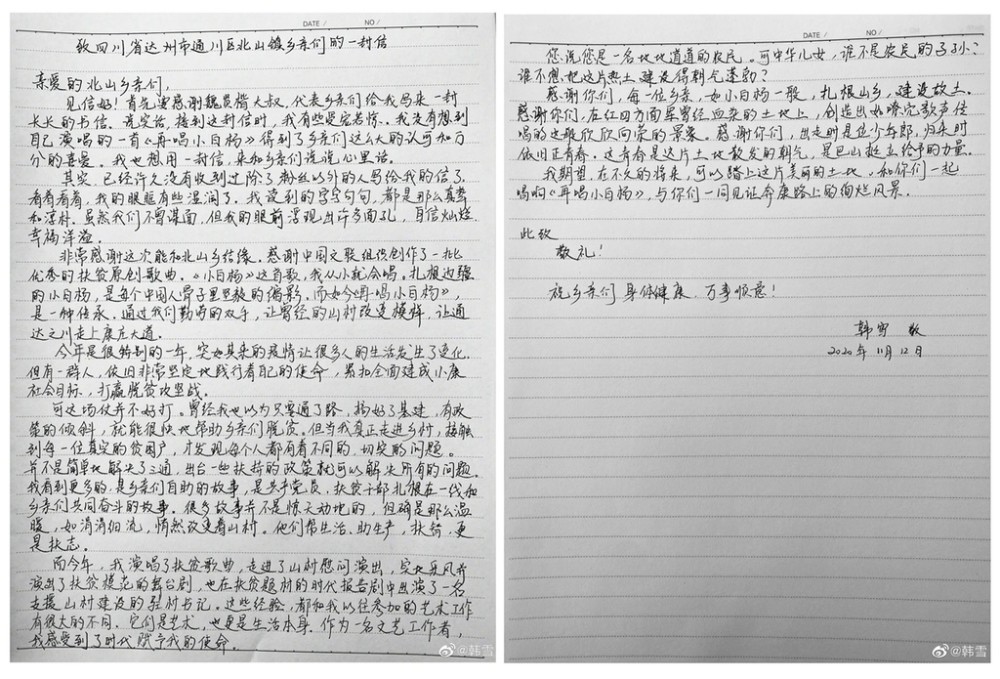 DATE / NO /
致四川省达州市通川区北山镇乡亲们的一封信
亲爱的北山乡亲们,
见信好!首先要感谢魏员楷大叔,代表乡亲们给我写来一封
长长的书信。说实话,接到这封信时,我有些受宠若惊。我没有想到
自己演唱的一首《再唱小白杨》得到了乡亲们这么大的认可和万
分的喜爱。我也想用一封信,来和乡亲们说说心里话。
其实,已经许久没有收到过除了粉丝以外的人写给我的信了。
看着看着,我的眼眶有些湿润了。我读到的字字句句,都是那么真挚
和淳朴。虽然我们不曾谋面,但我的眼前浮现出许多面孔,自信灿烂,
幸福洋溢。
非常感谢这次能和北山乡结缘。感谢中国文联组织创作了一批
优秀的扶贫原创歌曲。《小白杨》这首歌,我从小就会唱。扎根边疆
的小白杨,是每个中国人骨子里坚毅的缩影。而如今《再唱小白杨》,
是一种传承。通过我们勤劳的双手,让曾经的山村改变模样,让通
达之川走上康庄大道。
今年是很特别的一年,突如其来的疫情让很多人的生活发生了变化。
但有一群人,依旧非常坚定地践行着自己的使命,紧扣全面建成小康
社会目标,打赢脱贫攻坚战。
可这场仗并不好打。曾经我也以为只要通了路,搞好了基建,有政
策的倾斜,就能很快地帮助乡亲们脱贫。但当我真正走进乡村,接触
到每一位真实的贫困户,才发现每个人都有着不同的、切实的问题。
并不是简单地解决了三通,出台一些扶持的政策就可以解决所有的问题。
我看到更多的,是乡亲们自助的故事,是共产党员、扶贫干部扎根在一线和
乡亲们共同奋斗的故事。很多故事并不是惊天动地的,但确是那么温
暖,如涓涓细流,悄然改变着山村。他们帮生活、助生产,扶贫,更
是扶志。
而今年,我演唱了扶贫歌曲,走进了山村慰问演出,实地采风并
演出了扶贫模范的舞台剧,也在扶贫题材的时代报告剧中出演了一名
支援山村建设的驻村书记。这些经验,都和我以往参加的艺术工作
有很大的不同。它们是艺术,也更是生活本身。作为一名文艺工作者,
我感受到了时代赋予我的使命。
@韩雪
DATE / NO /
您说您是一名地地道道的农民。可中华儿女,谁不是农民的子孙?
谁不想把这片热土建设得朝气蓬勃?
感谢你们,每一位乡亲,如小白杨一般,扎根山乡,建设故土。
感谢你们,在红四方面军曾经血染的土地上,创造出如嘹亮歌声传
唱的这般欣欣向荣的景象。感谢你们,出走时是位少年郎,归来时
依旧正青春。这青春是这片土地散发的朝气,是巴山挺立给予的力量。
我期望,在不久的将来,可以踏上这片美丽的土地,和你们一起
唱响《再唱小白杨》,与你们一同见证奔康路上的绚烂风景。
此致
敬礼!
祝乡亲们身体健康,万事顺意!
韩雪 敬
2020年11月12日
@韩雪